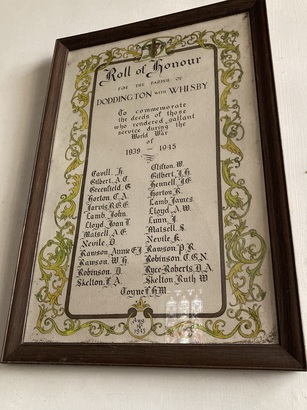 Roll of Honour
FOR THE PARISH OF
DODDINGTON WITH WHISBY
To commemorate
the deeds of those
who rendered gallant
service during the
World War
of
1939 - 1945
Cavill. H.
Gilbert, A.C.
Greenfield, G.
Horton, C.A.
Jarvis R.G.G.
Lamb. John
Lloyd, Joan I.
Matsell, A.G.
Nevile, D.
Rawson, Anne C.J.
Rawson, W.H.
Robinson. D.
Skelton, F.A.
Clifton, W.
Gilbert, J.H.
Hennell, J.G.
Horton, R.
Lamb, James
Lloyd, A.W.
Lunn, J.
Matsell, S.
Nevile, K.
Rawson, P.R.
Robinson, C.G.N.
Ryce-Roberts, D.A.
Skelton, Ruth W.
Toyne F.H.W.
1945